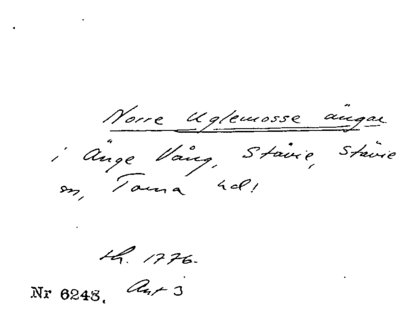 Norre Uglemosse ängar
i Änge Vång, Stävie, Stävie
sn, Torna hd!
sh. 1776.
Nr 6248. Akt 3